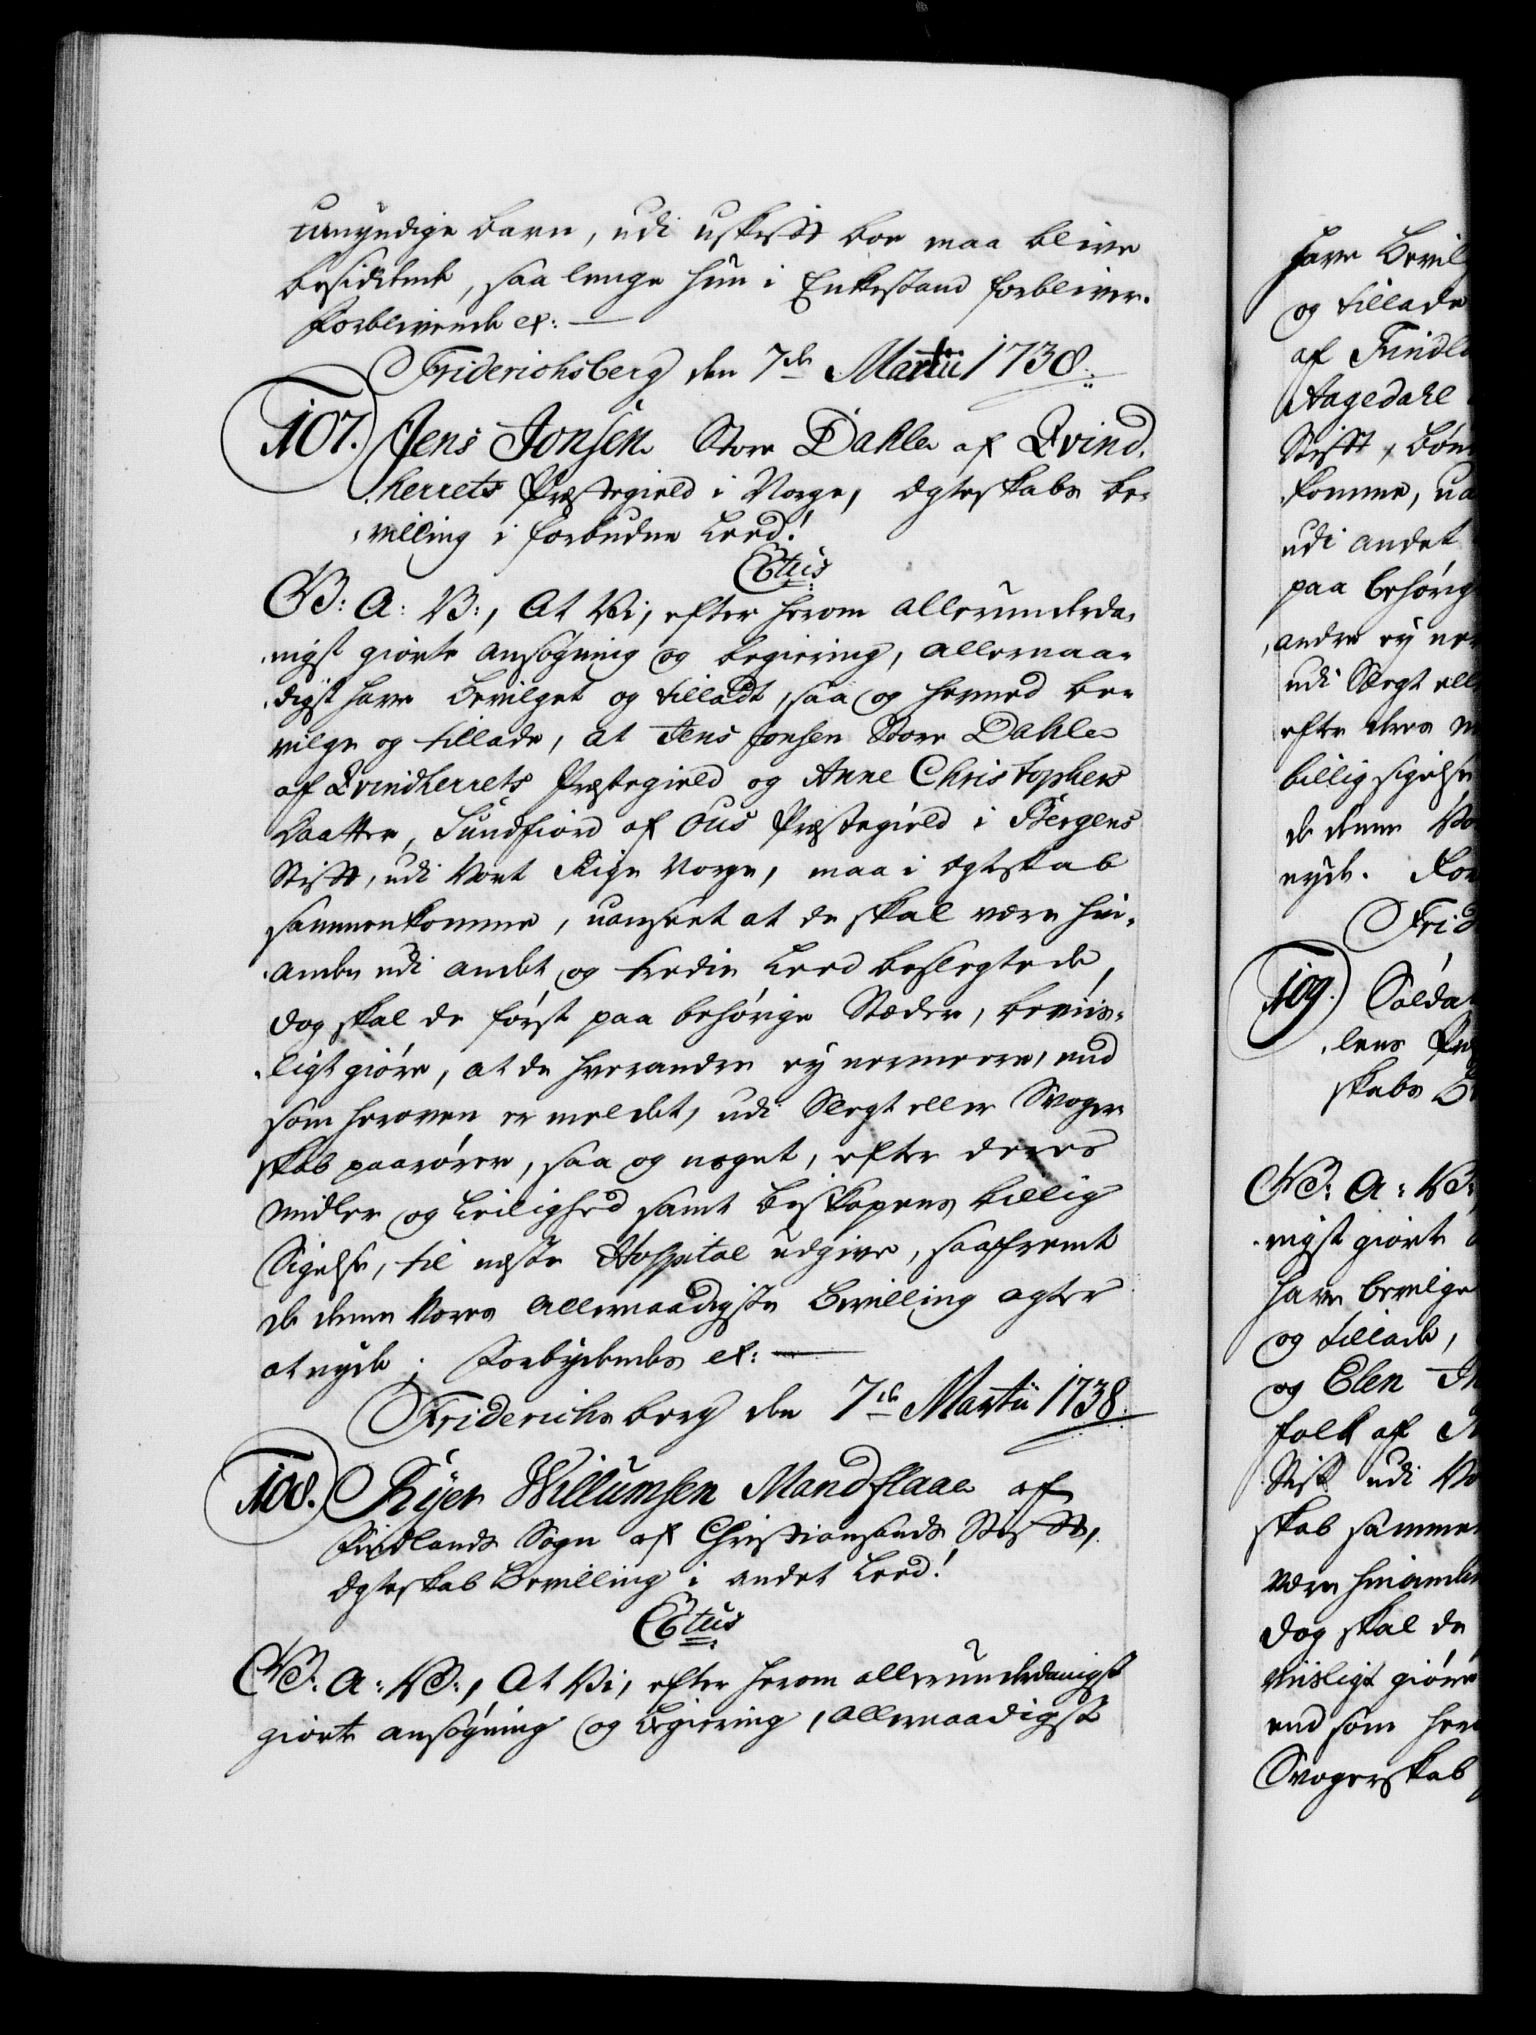 umyndige barn, udi uskifft boe maa blive
besiddende, saa lenge hun i Enkestand forbliver.
Forblivende etc: —
Friderichsberg den 7de Martii 1738.
107. Jens Jonsen Store Dahle af Qvind-
herrets Præstegield i Norge, Ægteskabs be-
villing i forbudne Leed!
C6tus
G: A: V:, At Vi, efter herom allerunderda-
nigst giorte ansøgning og begiering, allernaa-
digst have bevilget og tilladt, saa og hermed be-
vilge og tillade, at Jens Jonsen Store Dahle
af Qvindherrets Præstegield og Anne Christophers
Daatter, Sundfiord af Ous Præstegield i Bergens
Stifft, udi Vort Rige Norge, maa i Ægteskab
sammenkomme, uanseet at de skal være hin-
anden udi andet og tredie Leed beslegtede,
dog skal de først paa behørige Stæder, beviis-
ligt giøre, at de hverandre ey nermere, end
som heroven er meldet, udi Slegt eller Svoger-
skab paarører, saa og noget, efter deres
midler og Leilighed samt Biskopens billig
Sigelse, til neste Hospital udgive, saafremt
de denne Vores allernaadigste Bevilling agter
at nyde. Forbydendes etc: —
Friderichsberg den 7de Martii 1738.
108. Kyer Willumsen Mandflaae af
Findlands Sogn af Christiansands Stifft,
Ægteskab Bevilling i andet Leed!
C6tus
G: A: V:, At Vi, efter herom allerunderdanigst
giorte ansøgning og begiering, allernaadigst
have Bevilg
og tillade
af Findla
Aagedahl
Stifft, bøn
komme, ua
udi andet
paa behørig
andre ey ner
udi Slegt elle
efter deres m
billig sigelse
de denne Vo
nyde. For
Frid
109. Soldat
lens Præ
skabs B
G: A: V:
nigst giorte a
have bevilge
og tillade,
og Elen
folk af
Stift udi Vo
skab sammen
være hinanden
dog skal de
viisligt giøre
end som her
Svogerskab